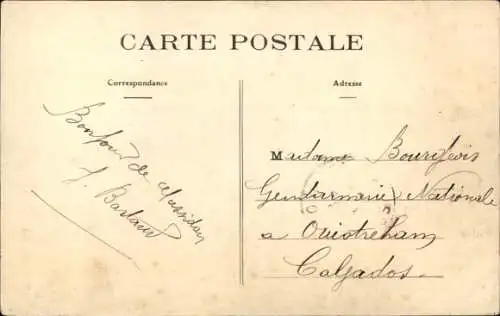 CARTE POSTALE
Correspondance
Adresse
Bonjour de Mussidan
J. Bastard
Madame Bourgeois
Gendarmerie Nationale
a Ouistreham
Calvados